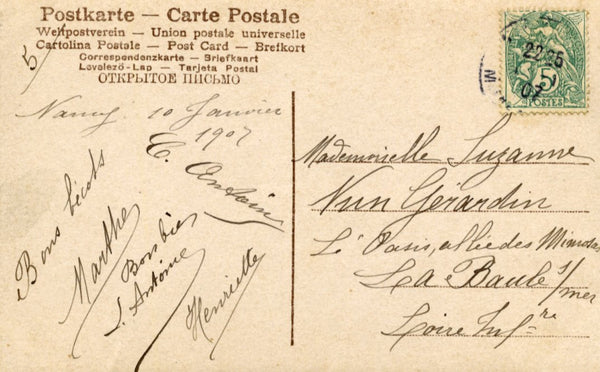 Postkarte — Carte Postale
Weltpostverein — Union postale universelle
Cartolina Postale — Post Card — Brefkort
Correspondenzkarte — Briefkaart
Levelező-Lap — Tarjeta Postal
ОТКРЫТОЕ ПИСЬМО
5
Nancy 10 Janvier
1907
E. Antoin
Bons bécots
Marthe
L. Antoine
Henriette
Mademoiselle Suzanne
Gérardin
allée des Mimosas
La Baule s/mer
Loire Infre
22 25
07
5
POSTES